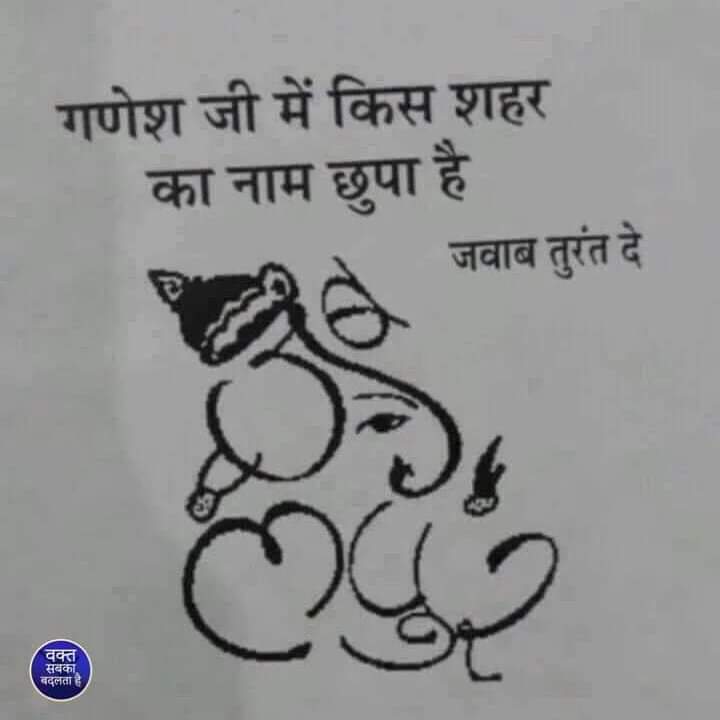 गणेश जी में किस शहर
का नाम छुपा है
जवाब तुरंत दे
वक्त
सबका
बदलता है